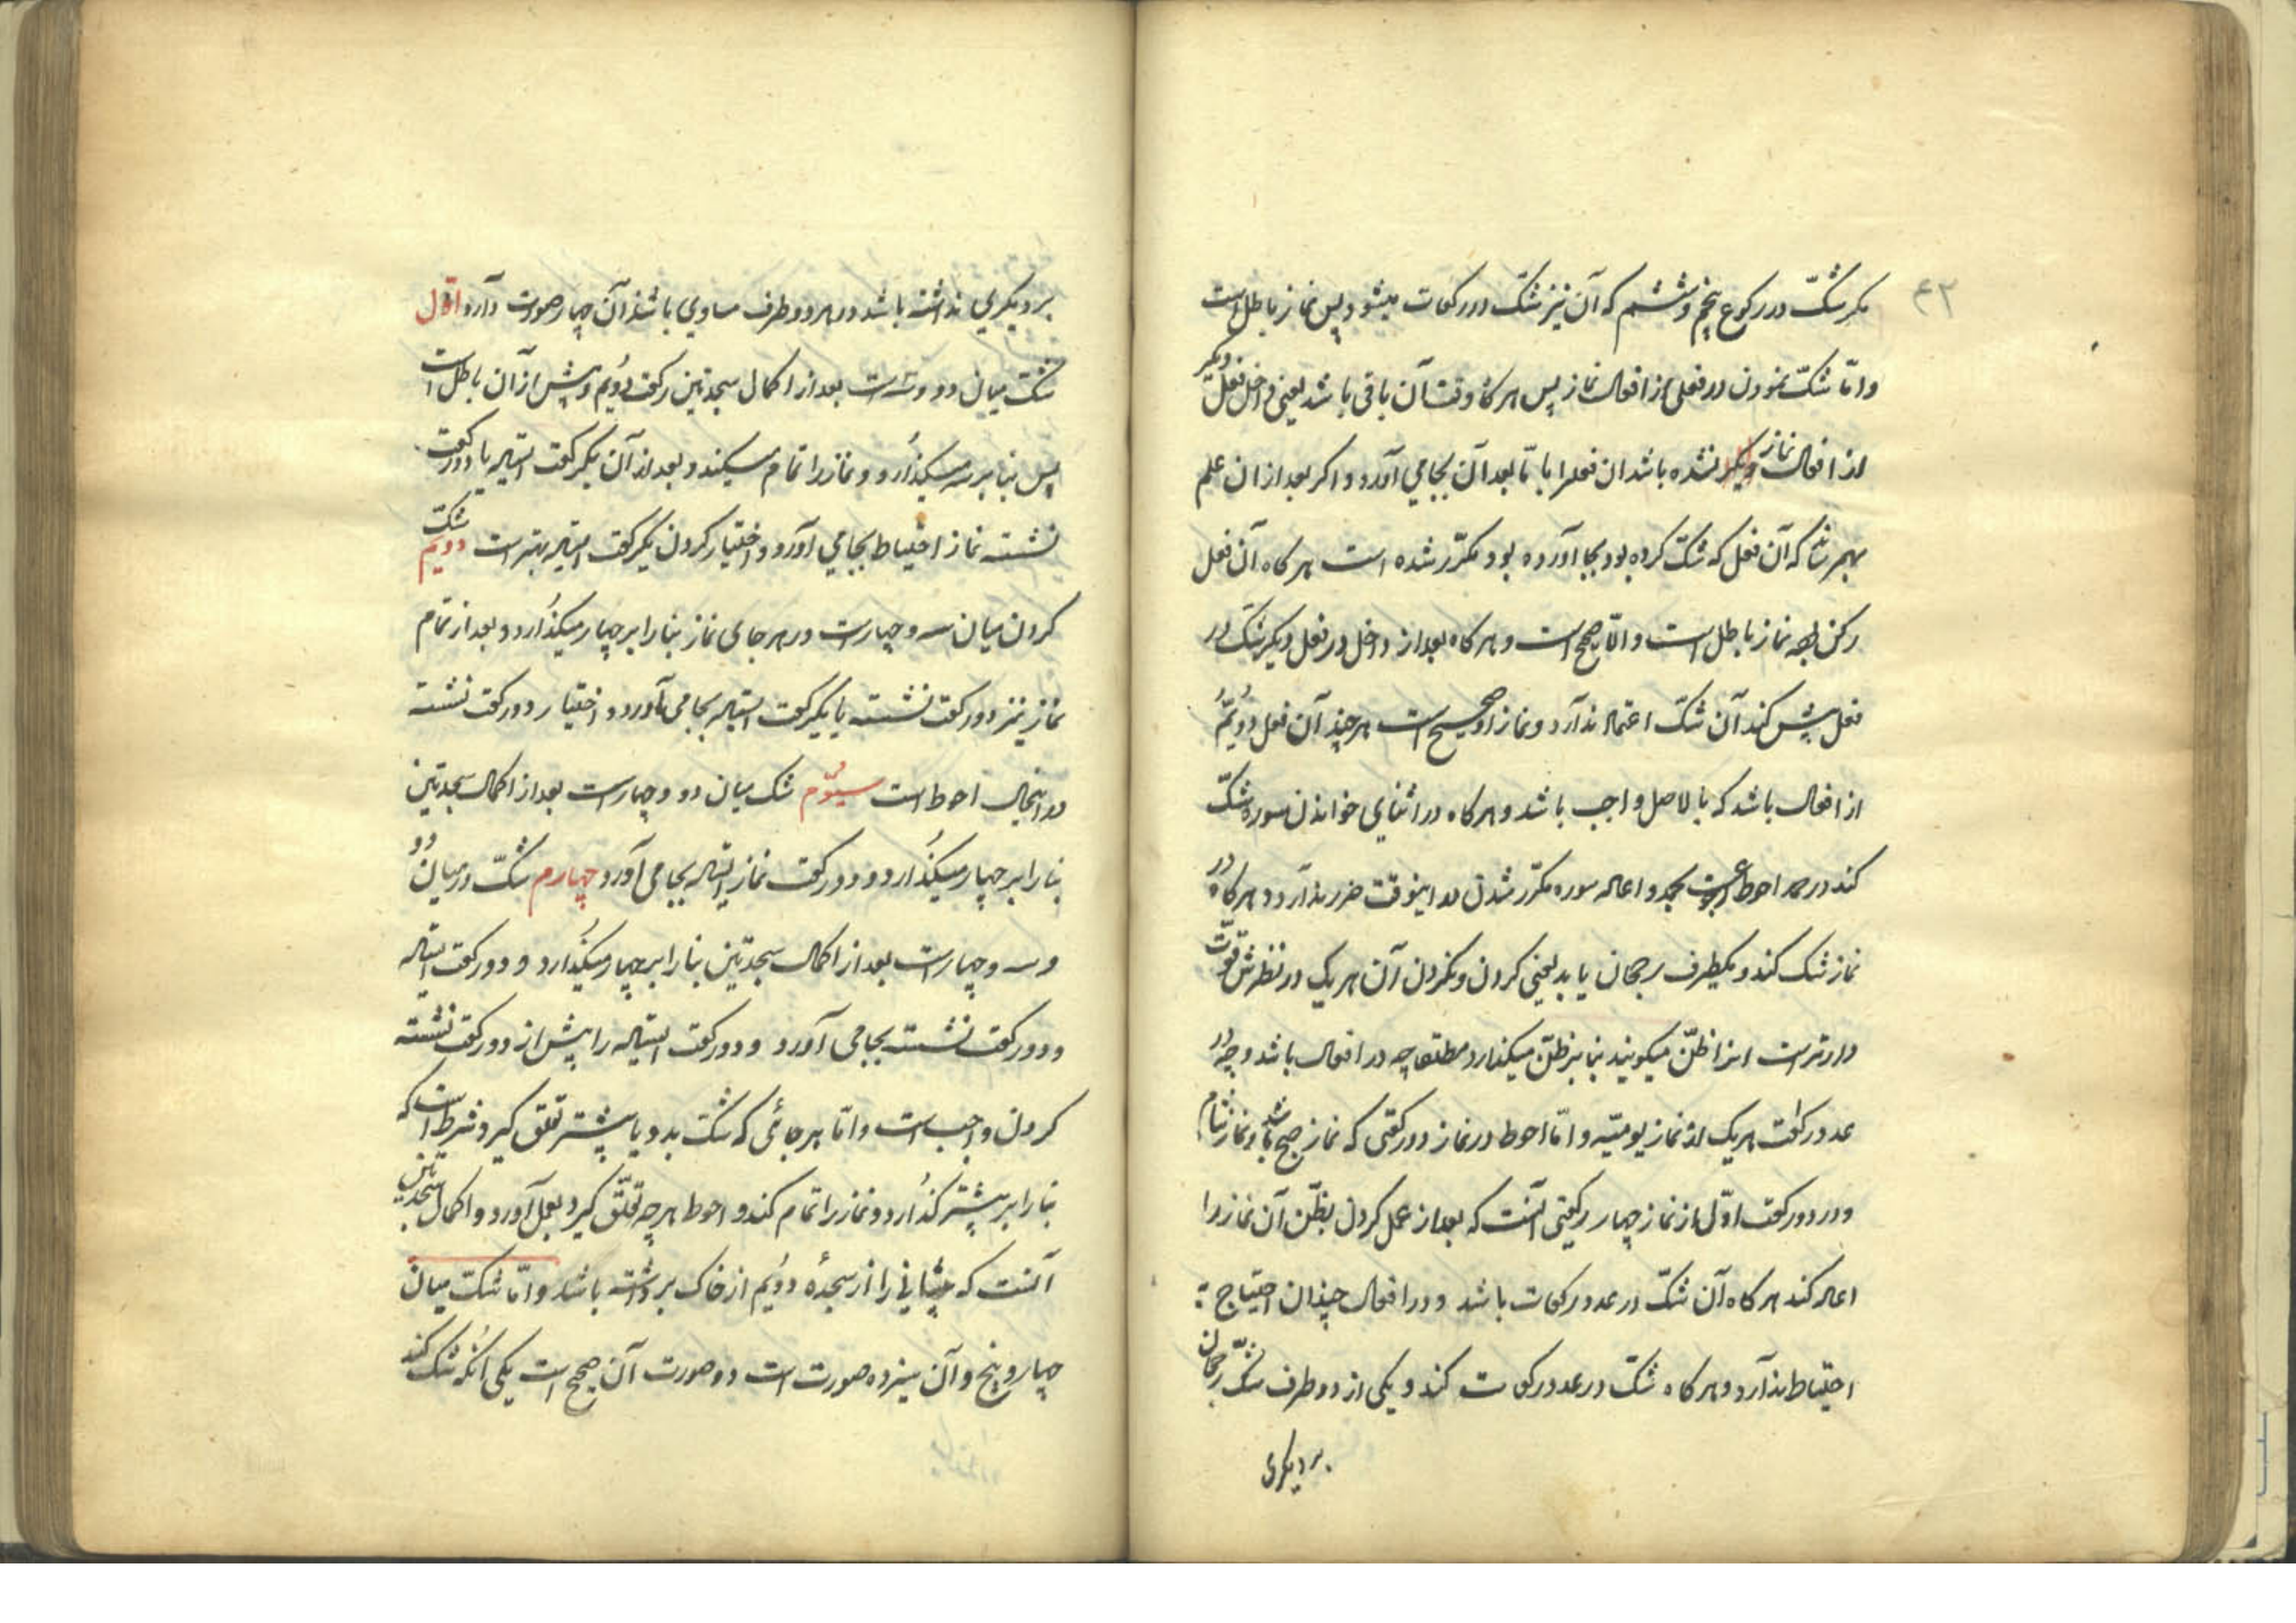 ۴۲
مکر شکّ در رکوع پنجم و ششم که آن نیز شکّ در رکعات میشود پس نماز باطل است
و امّا شکّ نمودن در فعلی از افعال نماز پس هر کاه وقت آن باقی باشد یعنی داخل فعل دیکر
از افعال نماز نشده باشد ان فعلرا با تا بعد آن بجا می آورد و اکر بعد از ان علم
بهم رساند که آن فعل که شکّ کرده بود بجا آورده بود مکرّر شده است هر کاه آن فعل
رکن بوده نماز باطل است و الّا صحیح است و هر کاه بعد از داخل در فعل دیکر شکّ در
فعل پیش کند آن شکّ اعتماد ندارد و نماز او صحیح است هر چند آن فعل دوّیم
از افعال باشد که بالاصل واجب باشد و هر کاه در اثنای خواندن سوره شکّ
کند در حمد احوط عود است بحمد و اعاده سوره مکرّر شدن در اینوقت ضرر ندارد و هر کاه در
نماز شک کند و یکطرف رجحان یابد یعنی کردن و نکردن آن هر یک در نظرش قوّت
دارتر است انرا ظنّ میکویند بنا بر ظنّ میکذارد مطلقا چه در افعال باشد و چه در
عدد رکعت هر یک از نماز یومیّه و امّا احوط در نماز دو رکعتی که نماز صبح باشد و نماز شام
و در دو رکعت اوّل از نماز چهار رکعتی آنست که بعد از عمل کردن بظنّ آن نماز را
اعاده کند هر کاه آن شکّ در عدد رکعات باشد و در افعال چندان احتیاج به
احتیاط ندارد و هر کاه شکّ در عدد رکعات کند و یکی از دو طرف شکّ رجحان
بر دیکری
بر دیکری نداشته باشد و هر دو طرف مساوی باشد آن چهار صورت دارد اوّل
شکّ میان دو و سه است بعد از اکمال سجدتین رکعت دوّیم و پیش از آن باطل است
پس بنا بر سه میکذارد و نماز را تمام میکند و بعد از آن یکرکعت ایستاده یا دو رکعت
نشسته نماز احتیاط بجا می آورد و اختیار کردن یکرکعت ایستاده بهتر است دویم شکّ
کردن میان سه و چهار است در هر جای نماز بنا را بر چهار میکذارد و بعد از تمام
نماز نیز دو رکعت نشسته یا یکرکعت ایستاده بجا می آورد و اختیار دو رکعت نشسته
در اینجا احوط است سیّوم شک میان دو و چهار است بعد از اکمال سجدتین
بنا را بر چهار میکذارد و دو رکعت نماز ایستاده بجا می آورد چهارم شکّ در میان دو
و سه و چهار است بعد از اکمال سجدتین بنا را بر چهار میکذارد و دو رکعت ایستاده
و دو رکعت نشسته بجا می آورد و دو رکعت ایستاده را پیش از دو رکعت نشسته
کردن واجب است و امّا هر جائی که شکّ بدو یا پیشتر تعلّق کیرد شرط است که
بنا را بر پیشتر کذارد و نماز را تمام کند و احوط هر چه تعلّق کیرد بعمل آورد و اکمال سجدتین
آنست که پیشانی را از سجدۀ دوّیم از خاک برداشته باشد و امّا شکّ میان
چهار و پنج و آن سیزده صورت است دو صورت آن صحیح است یکی آنکه شک کند